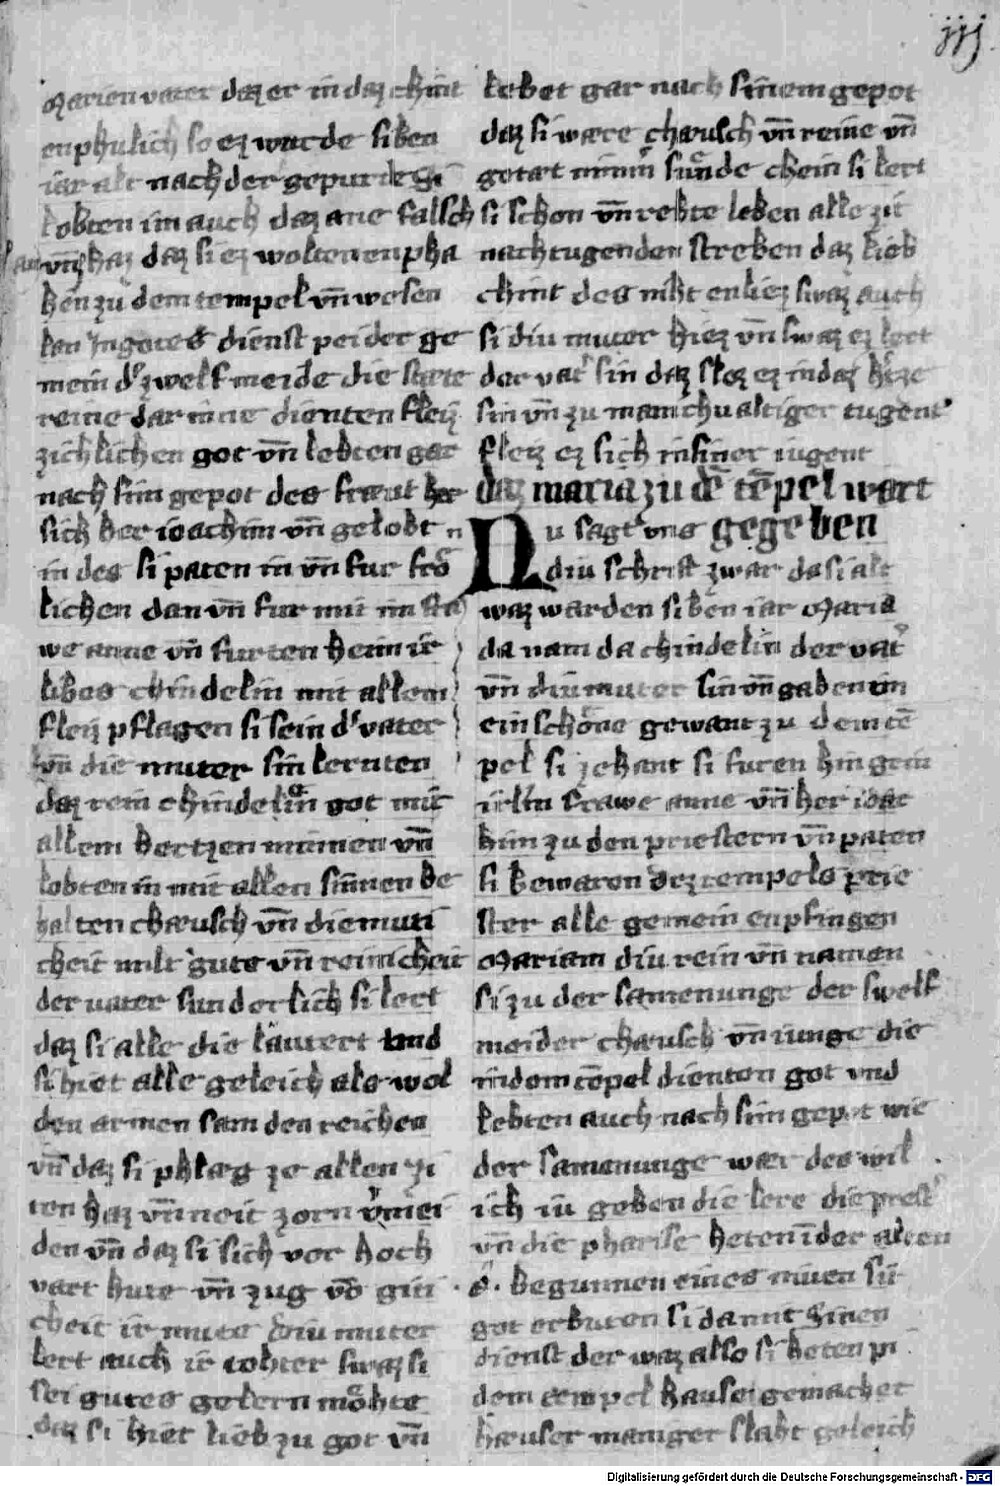 iij.
Marien vater daz er in daz chint
enphulich so ez wurde siben
iar alt nach der gepurt
lobten im auch daz ane falsch
vn̄ haz daz si ez wolten enpha
hen zů dem tempel vn̄ wesen
lan in gotes dienst pei der ge
mein d' zwelf meide die stæte
reine dar inne dienten fleiz
zichlichen got vn̄ lebten gar
nach sim gepot des fræut
sich her ioachim vn̄ gelobt
in des si paten in vn̄ fur frő
lichen dan vn̄ fur mit im
we anne vn̄ furten heim ir
libes chindelin mit allem
fleiz pflagen si sein d' vater
vn̄ die muter sin lernten
daz rein chindelin got mit
allem hertzen minnen vn̄
lobten in mit allen sinnen be
halten chæusch vn̄ diemuti
cheit milt gute vn̄ reinicheit
der vater sunderlich si lert
daz si alle die lauwert und
si hiet alle geleich als wol
den armen sam den reichen
vn̄ daz si phlæg ze allen zi
ten haz vn̄ neit zorn v'mei
den vn̄ daz si sich vor hoch
vart hute vn̄ zug vō giti
cheit ir mute diu muter
lert auch ir tohter swaz si
sei gutes gelern mőhte
daz si hiet lieb zu got vn̄
lebet gar nach sinem gepot
daz si wære chæusch vn̄ reine vn̄
getæt nimm' sůnde chein si lert
si schon vn̄ rehte leben alle zit
nach tugenden streben daz lieb
chint des niht enliez swaz auch
si diu muter hiez vn̄ swaz ez lert
der vat' sin daz sloz ez in daz h'ze
sin vn̄ zu manichualtiger tugent
fleiz ez sich in siner iugent
daz maria zu dē tēpel wart
gegeben
Nu sagt vns
diu schrift zwar da si alt
waz warden siben iar Maria
da nam da chindelin der vat'
vn̄ diu muter sin vn̄ gaben im
ein schőne gewant zu dem tē
pel si zehant si furen hin gein
irl'm frawe anne vn̄ her ioac
him zu den priestern vn̄ paten
si bewaren dez tempels prie
ster alle gemein enpfingen
Mariam diu rein vn̄ namen
si zu der samenunge der swelf
meider chæusch vn̄ iunge die
in dem tēpel dienten got vnd
lebten auch nach sim gepot wie
der samenunge wær des wil
ich iu geben die lere die prest'
vn̄ die pharise heten in der alten
ê. begunnen eines niuen sit
got erbuten si da mit sinen
dienst der waz also si heten pi
dem tempel hauser gemachet
hæuser maniger slaht geleich